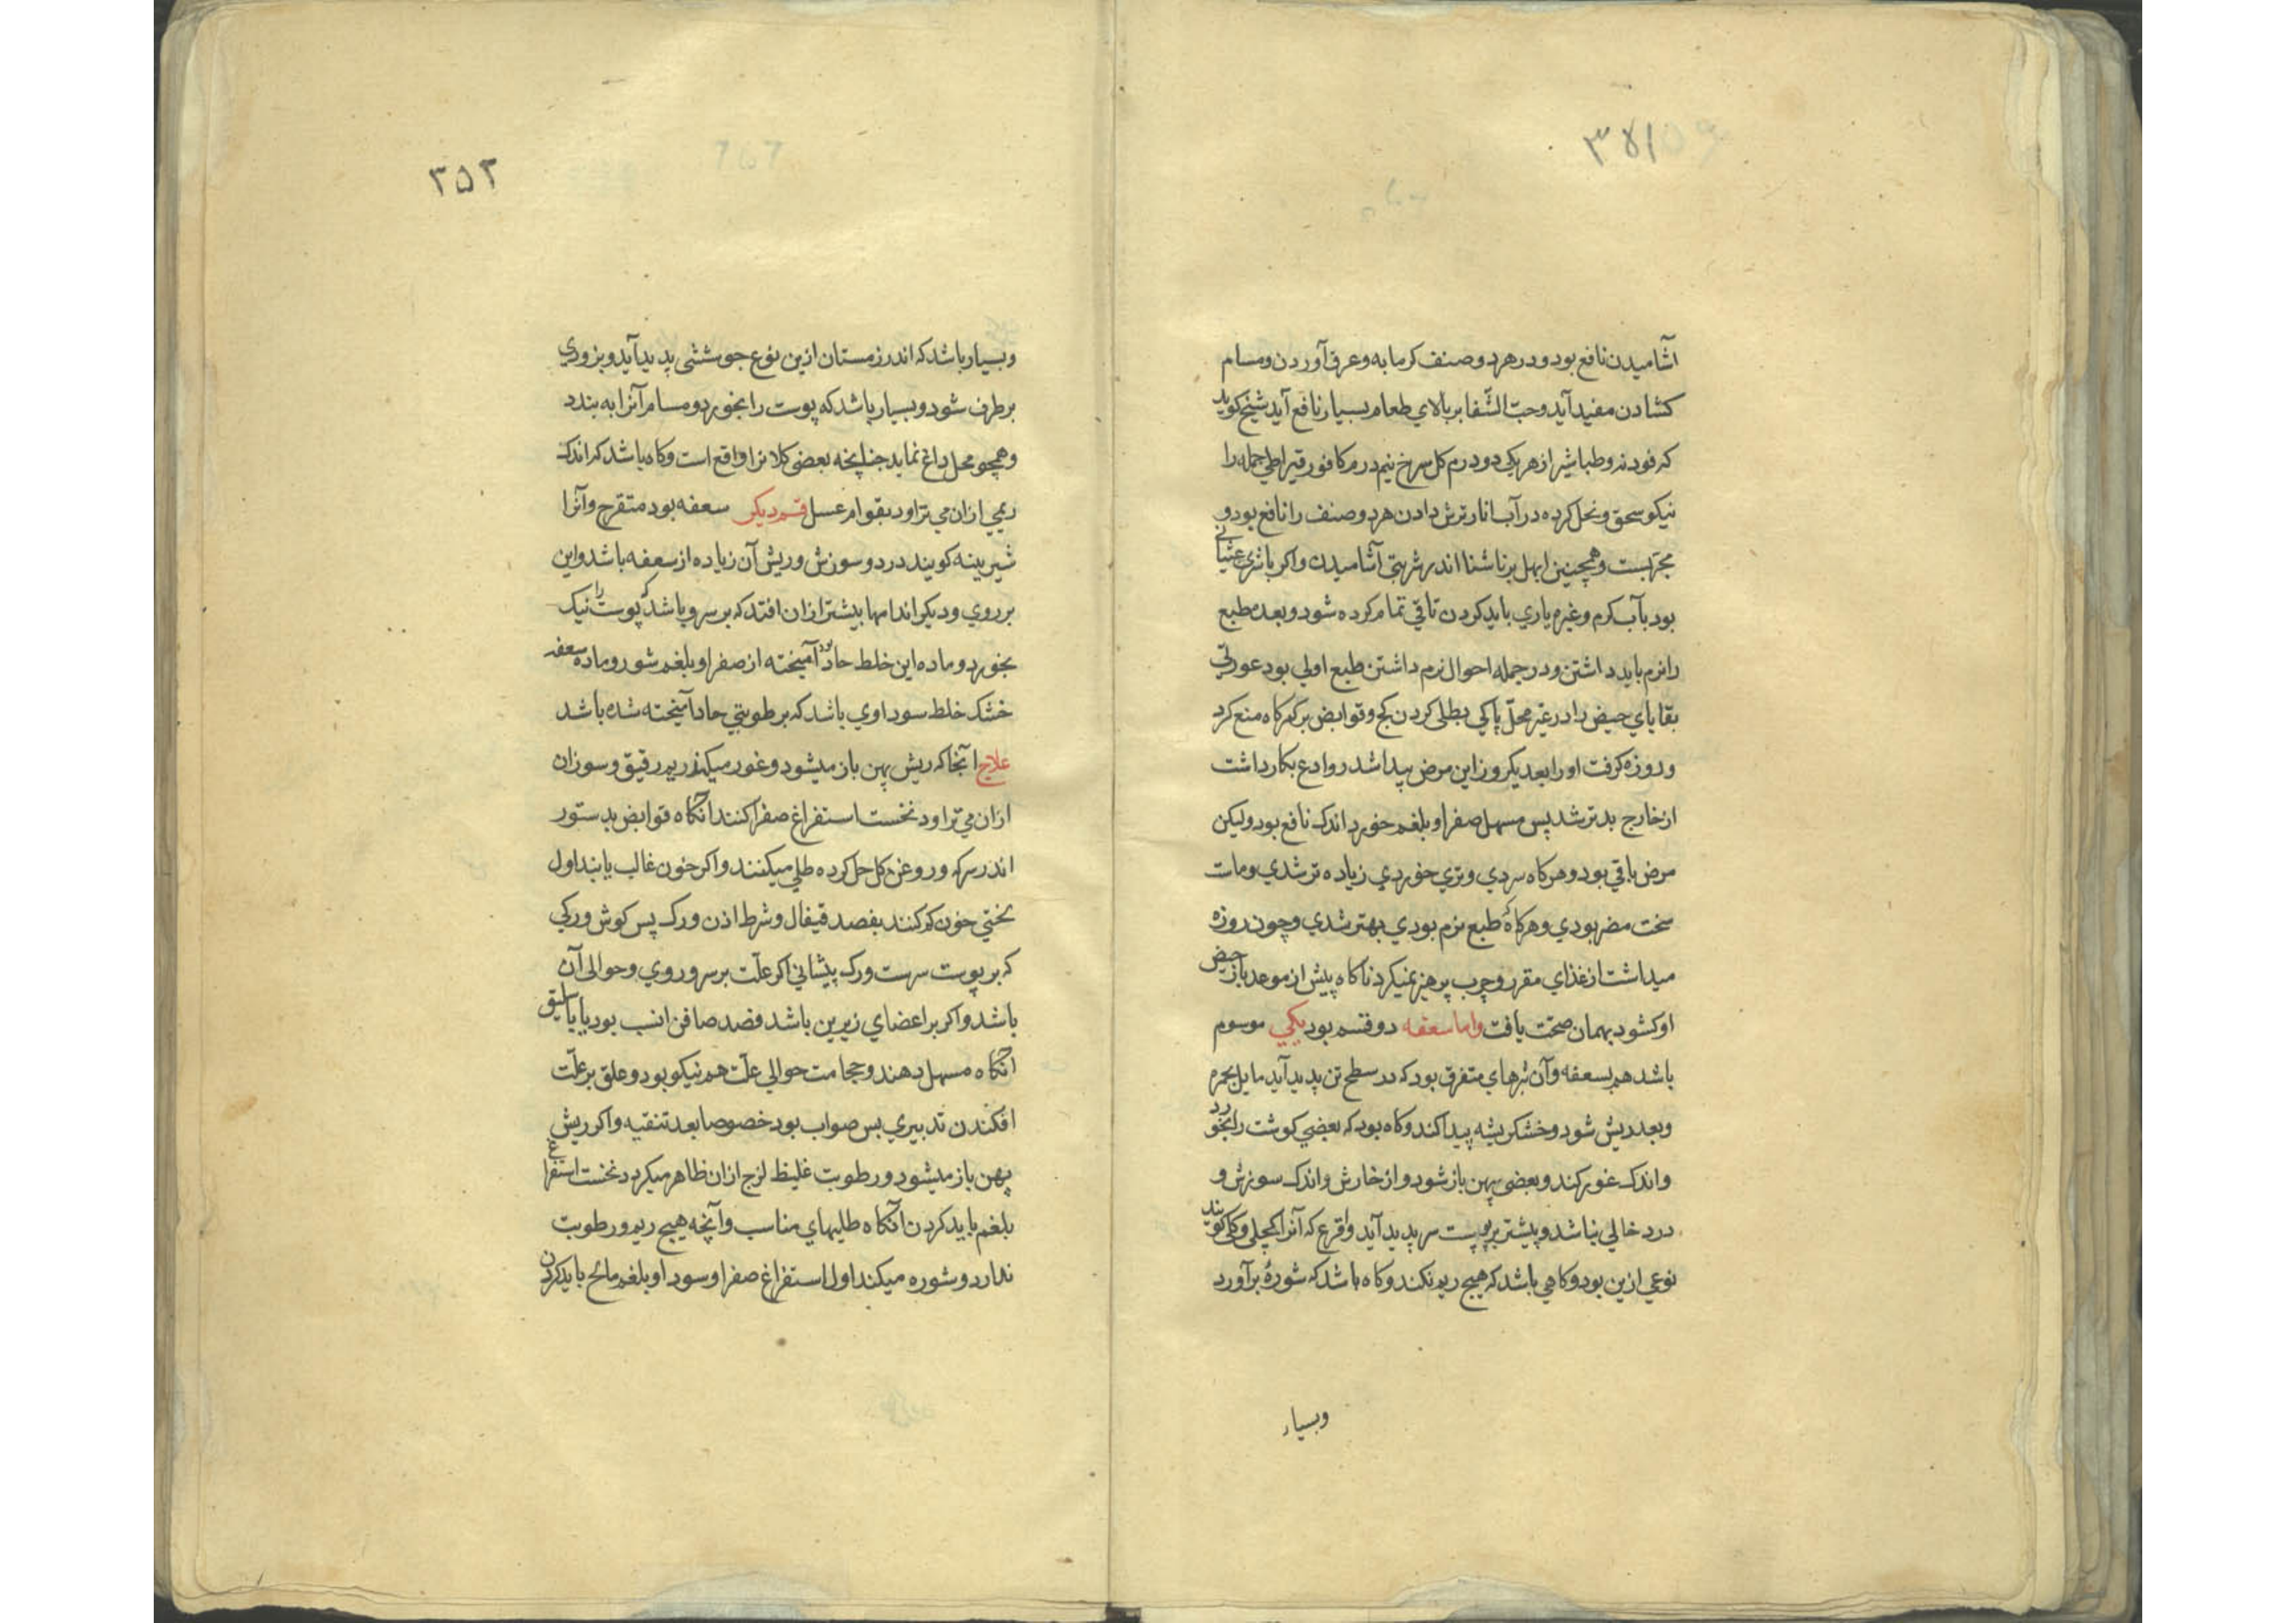 ۳۵۱
آشامیدن نافع بود و در هر دو صنف کرمابه و عرق آوردن و مسام
کشادن مفید آید و حبّ الشّفا بر بالای طعام بسیار نافع آید شیخ کوید
که فودنه و طباشیر از هر یکی دو درم کل سرخ نیم درم کافور قیراطی جمله را
نیکو سحق و نحل کرده در آب انار ترش دادن هر دو صنف را نافع بود و
مجربست و همچنین ابهل بر ناشتا اندر شربتی آشامیدن و اکر با شری غثیانی
بود بآب کرم و غیره یاری باید کردن تا قی تمام کرده شود و بعد طبع
را نرم باید داشتن و در جمله احوال نرم داشتن طبع اولی بود عورتی
بقایای حیض را در غیر محلّ پاکی بطلی کردن کج و قوابض بر کمرکاه منع کرد
و روزه کرفت او را بعد یکروز این مرض پیدا شد روادع بکار داشت
از خارج بدتر شد پس مسهل صفرا و بلغم خورد اندک نافع بود ولیکن
مرض باقی بود و هرکاه سردی و تری خوردی زیاده تر شدی و ماست
سخت مضر بودی و هرکاه که طبع نرم بودی بهتر شدی و چون روزه
میداشت از غذای مقرر و چرب پرهیز نمیکرد ناکاه پیش از موعد باز حیض
او کشود بهمان صحّت یافت و اما سعفه دو قسم بود یکی موسوم
باشد هم بسعفه و آن بثرهای متفرق بود که در سطح تن پدید آید مایل بحمره
و بعد ریش شود و خشکریشه پیدا کند و کاه بود که بعضی کوشت را بخورد
و اندک غور کند و بعضی پهن باز شود و از خارش و اندک سوزش و
درد خالی نباشد و بیشتر بر پوست سر پدید آید و اقرع که آنرا کچلی و کلی کویند
نوعی ازین بود و کاهی باشد که هیچ ریم نکند و کاه باشد که شورهٔ برآورد
وبسیار
۳۵۲
و بسیار باشد که اندر زمستان ازین نوع جوششی پدید آید و بزودی
برطرف شود و بسیار باشد که پوست را بخورد و مسام آنرا به بندد
و همچو محل داغ نماید چنانچه بعضی کلانرا واقع است و کاه باشد که اندک
ریمی ازان می تراود بقوام عسل قسم دیکر سعفه بود متقرح و آنرا
شیرینه کویند درد و سوزش و ریش آن زیاده از سعفه باشد و این
بر روی و دیکر اندامها بیشتر ازان افتد که بر سر و باشد که پوست را نیک
بخورد و ماده این خلط حاد بود آمیخته از صفرا و بلغم شور و ماده سعفه
خشک خلط سوداوی باشد که برطوبتی حاد آمیخته شده باشد
علاج آنجا که ریش پهن باز میشود و غور میکند و ریم رقیق و سوزان
ازان می تراود نخست استفراغ صفرا کنند آنکاه قوابض بدستور
اندر سرکه و روغن کل حل کرده طلی میکنند و اکر خون غالب یابند اول
لختی خون کم کنند بفصد قیفال و شرط اذن و رک پس کوش و رکی
که بر پوست سرست و رک پیشانی اکر علّت بر سر و روی و حوالی آن
باشد و اکر بر اعضای زیرین باشد فصد صافن انسب بود یا باسلیق
آنکاه مسهل دهند و حجامت حوالی علّت هم نیکو بود و علق بر علّت
افکندن تدبیری بس صواب بود خصوصا بعد تنقیه و اکر ریش
پهن باز میشود و رطوبت غلیظ لزج ازان ظاهر میکردد نخست استفراغ
بلغم باید کردن آنکاه طلیهای مناسب و آنچه هیچ ریم و رطوبت
ندارد و شوره میکند اول استفراغ صفرا و سودا و بلغم مالح باید کردن